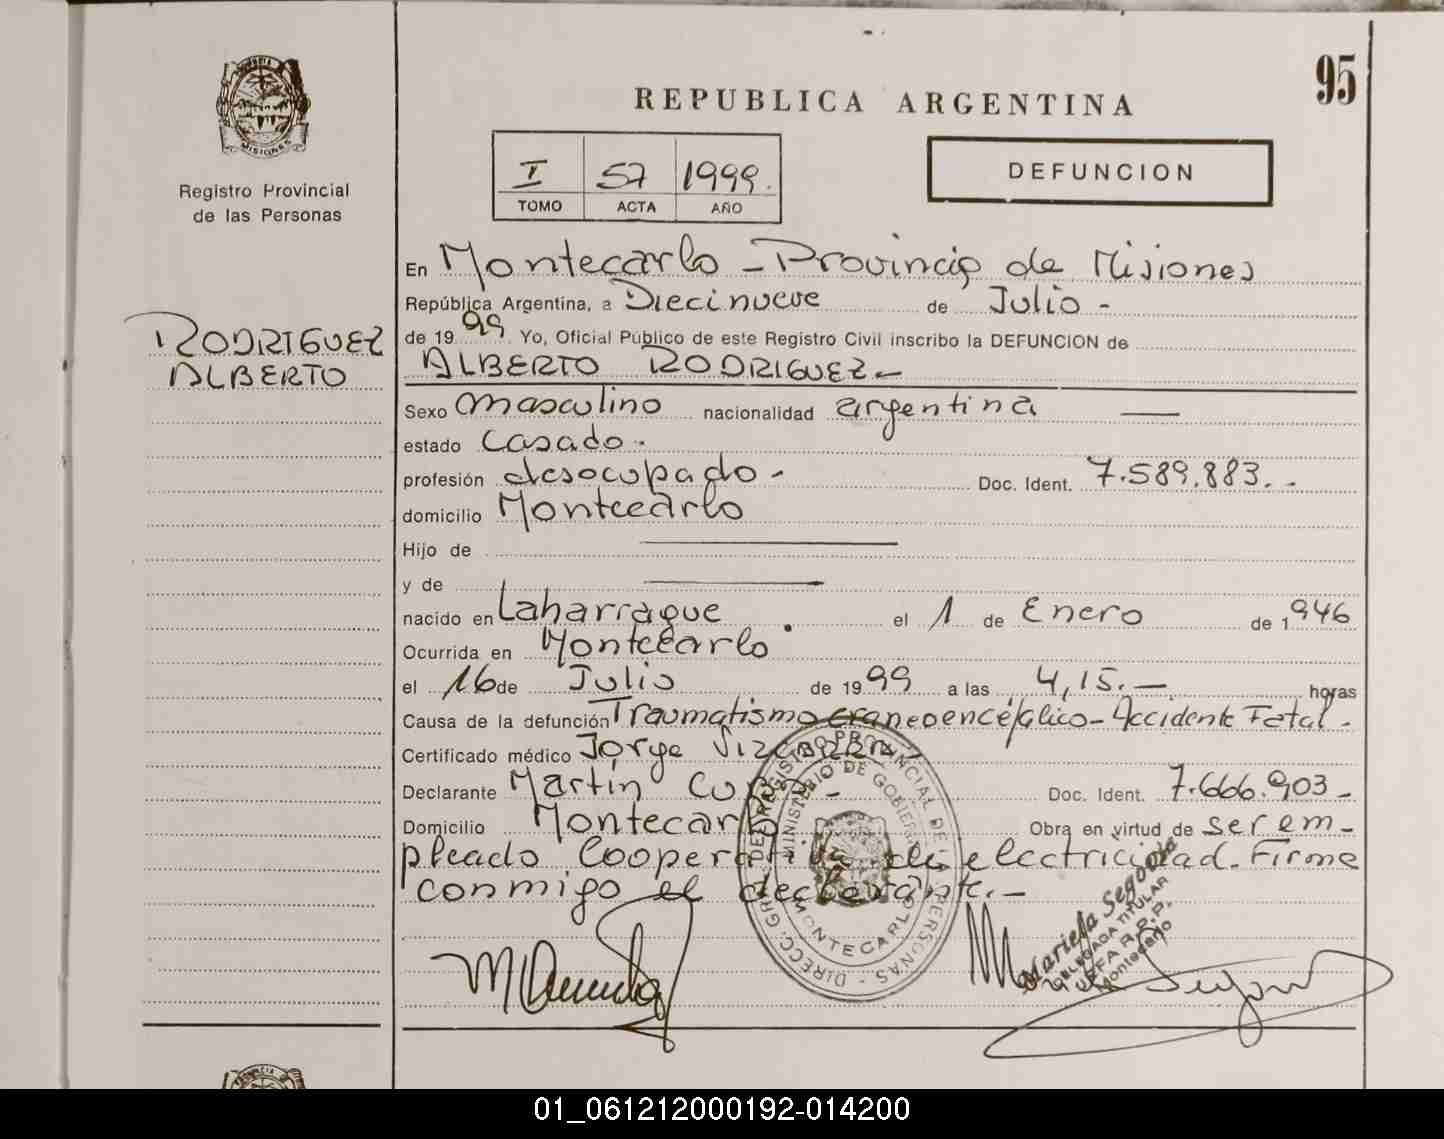 PROVINCIA DE
MISIONES
Registro Provincial
de las Personas
RODRIGUEZ
ALBERTO
95
REPUBLICA ARGENTINA
I 57 1999.
TOMO ACTA AÑO
DEFUNCION
En Montecarlo - Provincia de Misiones
República Argentina, a Diecinueve de Julio -
de 19 99 Yo, Oficial Público de este Registro Civil inscribo la DEFUNCION de
ALBERTO RODRIGUEZ -
Sexo masculino nacionalidad argentina —
estado casado.
profesión desocupado - Doc. Ident. 7.589.883. -
domicilio Montecarlo
Hijo de —
y de —
nacido en Laharrague el 1 de Enero de 1946
Ocurrida en Montecarlo.
el 16 de Julio de 19 99 a las 4,15. — horas
Causa de la defunción Traumatismo craneoencéfalico - Accidente Fatal -
Certificado médico Jorge
Declarante Martín - Doc. Ident. 7.666.903 -
Domicilio Montecarlo Obra en virtud de ser em-
pleado Cooperativa de electricidad. Firma
conmigo el declarante. -
DIRECC. GRAL. DEL REGISTRO PROVINCIAL DE LAS PERSONAS -
MINISTERIO DE GOBIERNO
MONTECARLO
Mariela Segovia
DELEGADA TITULAR
JEFA R.P.P.
Montecarlo
01_061212000192-014200